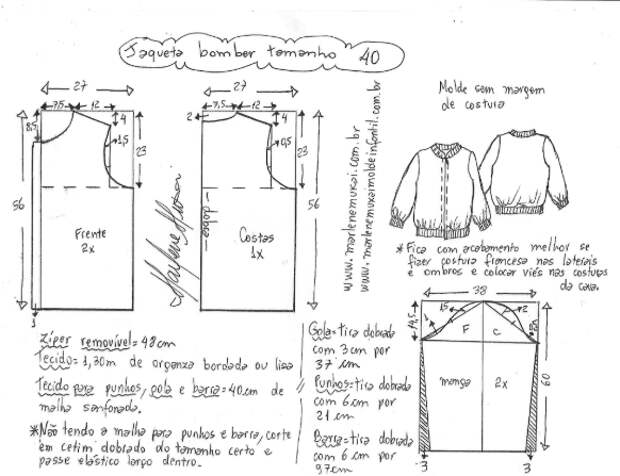 Jaqueta bomber tamanho 40
27
7,5
12
4
8,5
1,5
23
56
Frente
2x
1
27
7,5
12
2
4
0,5
23
56
dobra
Costas
1x
Marlene Mukai
www.marlenemukai.com.br
www.marlenemukaimoldeinfantil.com.br
Molde sem margem
de costura
*Fica com acabamento melhor se
fizer costura francesa nas laterais
e ombros e colocar viés nas costuras
da cava.
Zíper removível = 48cm
Tecido = 1,30m de organza bordada ou lisa
Tecido para punhos, gola e barra = 40cm de
malha sanfonada.
*Não tendo a malha para punhos e barra, corte
em cetim dobrado do tamanho certo e
passe elástico largo dentro.
Gola = tira dobrada
com 3cm por
37cm
Punhos = tira dobrada
com 6cm por
21cm
Barra = tira dobrada
com 6cm por
97cm
38
14,5
1
1,5
2
F
C
manga
2x
60
3
3